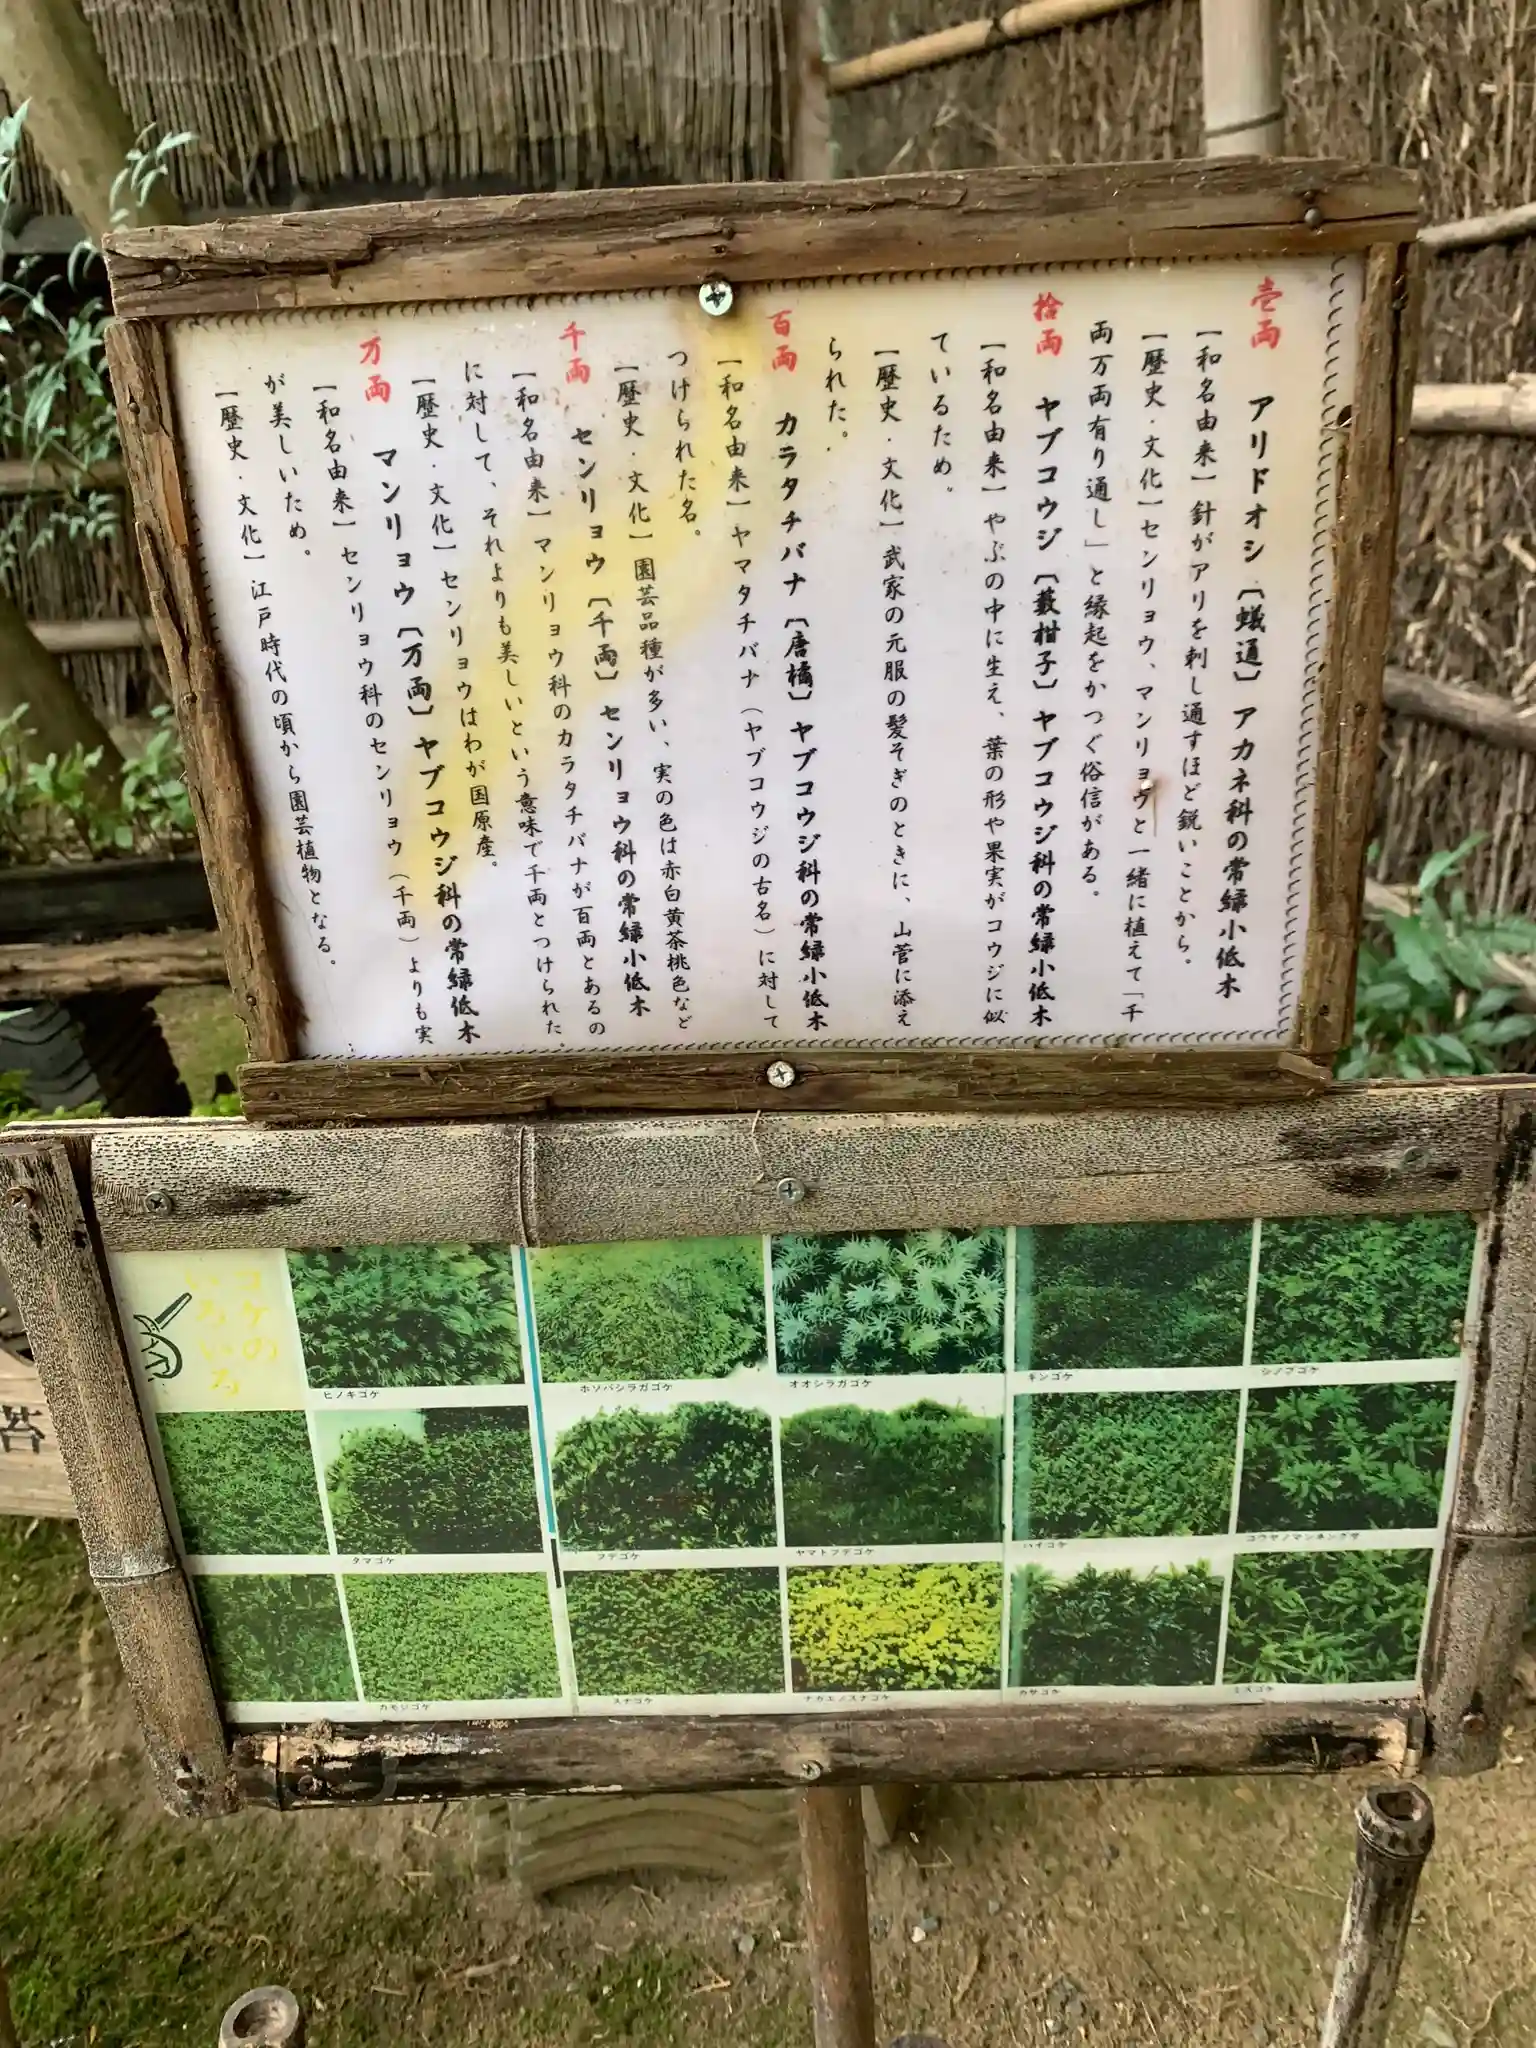 壱両 アリドオシ〔蟻通〕アカネ科の常緑小低木
【和名由来】針がアリを刺し通すほど鋭いことから。
【歴史・文化】センリョウ、マンリョウと一緒に植えて「千
両万両有り通し」と縁起をかつぐ俗信がある。
拾両 ヤブコウジ〔藪柑子〕ヤブコウジ科の常緑小低木
【和名由来】やぶの中に生え、葉の形や果実がコウジに似
ているため。
【歴史・文化】武家の元服の髪そぎのときに、山菅に添え
られた。
百両 カラタチバナ〔唐橘〕ヤブコウジ科の常緑小低木
【和名由来】ヤマタチバナ(ヤブコウジの古名)に対して
つけられた名。
【歴史・文化】園芸品種が多い、実の色は赤白黄茶桃色など
千両 センリョウ〔千両〕センリョウ科の常緑小低木
【和名由来】マンリョウ科のカラタチバナが百両とあるの
に対して、それよりも美しいという意味で千両とつけられた。
【歴史・文化】センリョウはわが国原産。
万両 マンリョウ〔万両〕ヤブコウジ科の常緑低木
【和名由来】センリョウ科のセンリョウ(千両)よりも実
が美しいため。
【歴史・文化】江戸時代の頃から園芸植物となる。
コケの
いろいろ
ヒノキゴケ
ホソバシラガゴケ
オオシラガゴケ
キンゴケ
シノブゴケ
タマゴケ
フデゴケ
ヤマトフデゴケ
ハイゴケ
コウヤノマンネングサ
カモジゴケ
スナゴケ
ナガエノスナゴケ
カサゴケ
ミズゴケ
苔